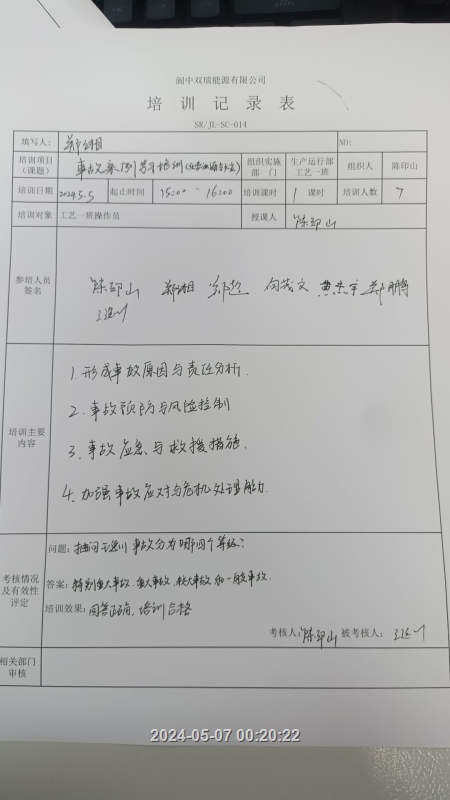 阆中双瑞能源有限公司
培训记录表
SR/JL-SC-014
填写人: 郑相 NO:
培训项目（课题） 事故案例学习培训 组织实施部门 生产运行部工艺一班 组织人 陈印山
培训日期 2024.5.5 起止时间 15:00 - 16:00 培训课时 1 课时 培训人数 7
培训对象 工艺一班操作员 授课人 陈印山
参培人员签名
陈印山 郑相 郑超 向茂文 黄杰宇 郑鹏
培训主要内容
1. 形成事故原因与责任分析.
2. 事故预防与风险控制
3. 事故应急与救援措施.
4. 加强事故应对与危机处理能力.
考核情况及有效性评定
问题: 抽问 事故分为哪四个等级?
答案: 特别重大事故、重大事故、较大事故和一般事故.
培训效果: 回答正确, 培训合格
考核人: 陈印山 被考核人:
相关部门审核
2024-05-07 00:20:22